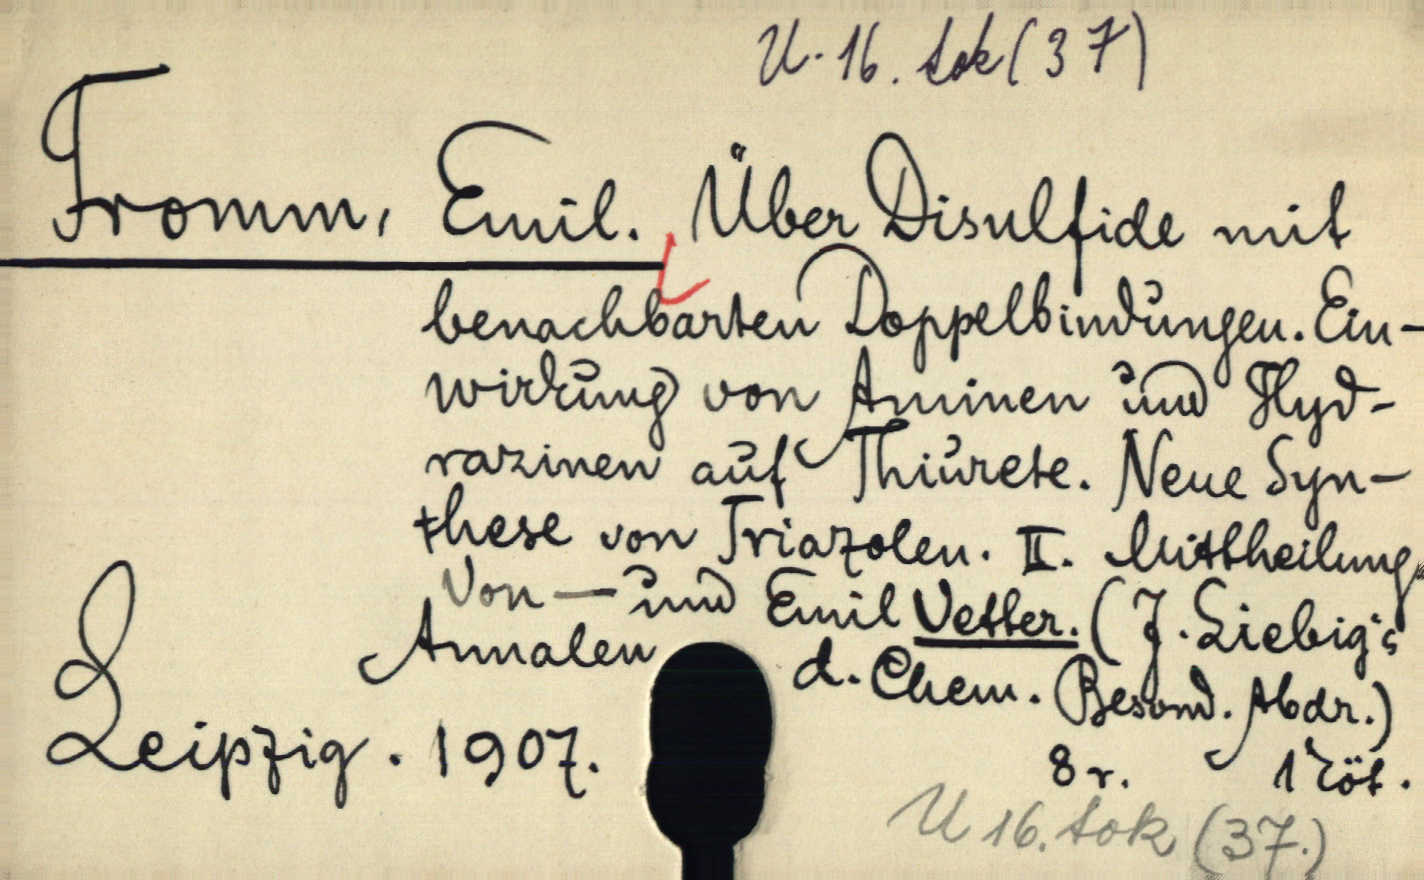 U. 16. tok (37)
Fromm, Emil. Über Disulfide mit
benachbarten Doppelbindungen. Ein-
wirkung von Aminen und Hyd-
razinen auf Thiurete. Neue Syn-
these von Triazolen. II. Mittheilung
Von — und Emil Vetter. (J. Liebig's
Annalen d. Chem. Besond. Abdr.)
Leipzig. 1907. 8 r. 1 köt.
U 16. tok (37.)